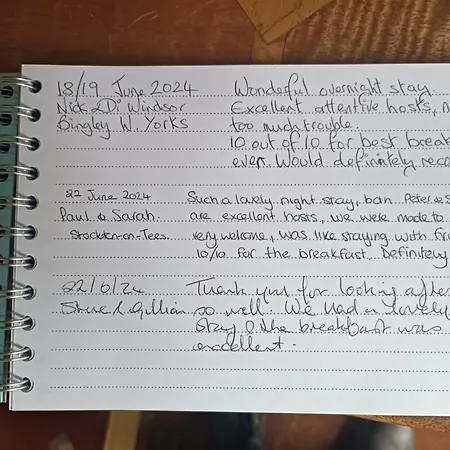 18/19 June 2024 Wonderful overnight stay
Nick & Di Windsor Excellent attentive hosts, n
Bingley W. Yorks too much trouble.
10 out of 10 for best break
ever. Would definitely reco
22 June 2024 Such a lovely night stay, ban Peter &
Paul & Sarah. are excellent hosts, we were made to
Stockton-on-Tees very welcome, was like staying with fri
10/10 for the breakfast Definitely
22/6/24 Thank you for looking after
Steve & Gillian so well. We had a lovely
stay & the breakfast was
excellent.